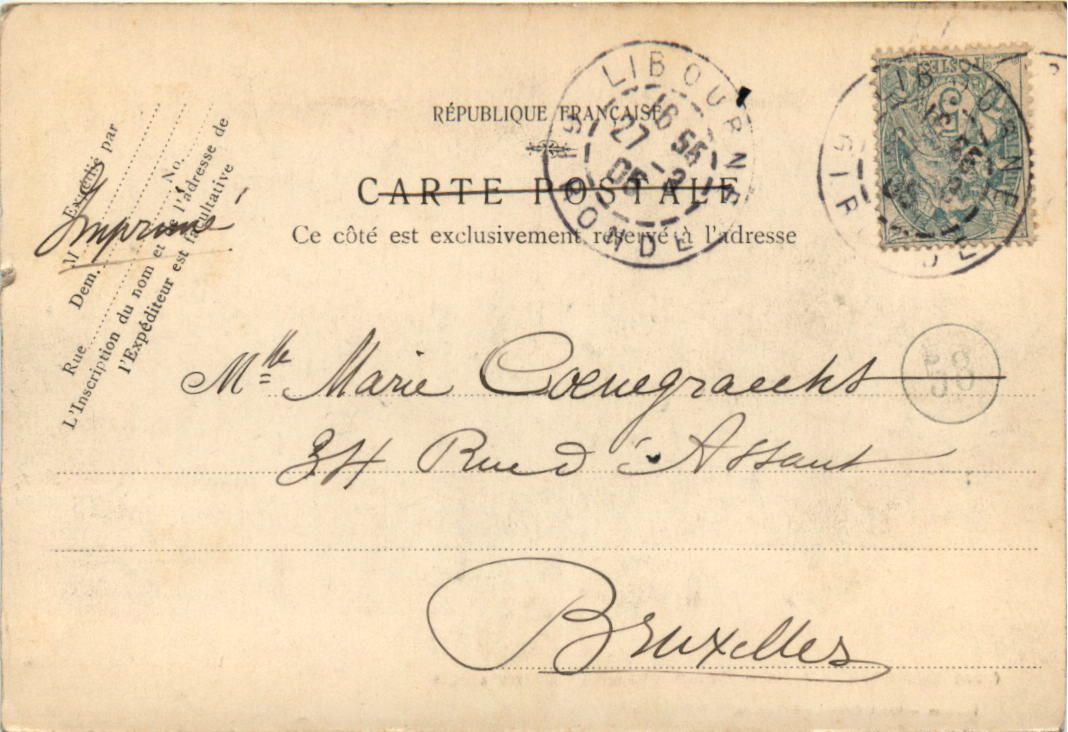 RÉPUBLIQUE FRANÇAISE
CARTE POSTALE
Ce côté est exclusivement réservé à l'adresse
Expédié par
M
Dem.
No.
Rue
L'Inscription du nom et de l'adresse de
l'Expéditeur est facultative
Imprimé
LIBOURNE
16 55
27 -2
05
GIRONDE
LIBOURNE
GIRONDE
POSTES
5
58
Mlle Marie Coenegraechts
34 Rue d'Assaut
Bruxelles